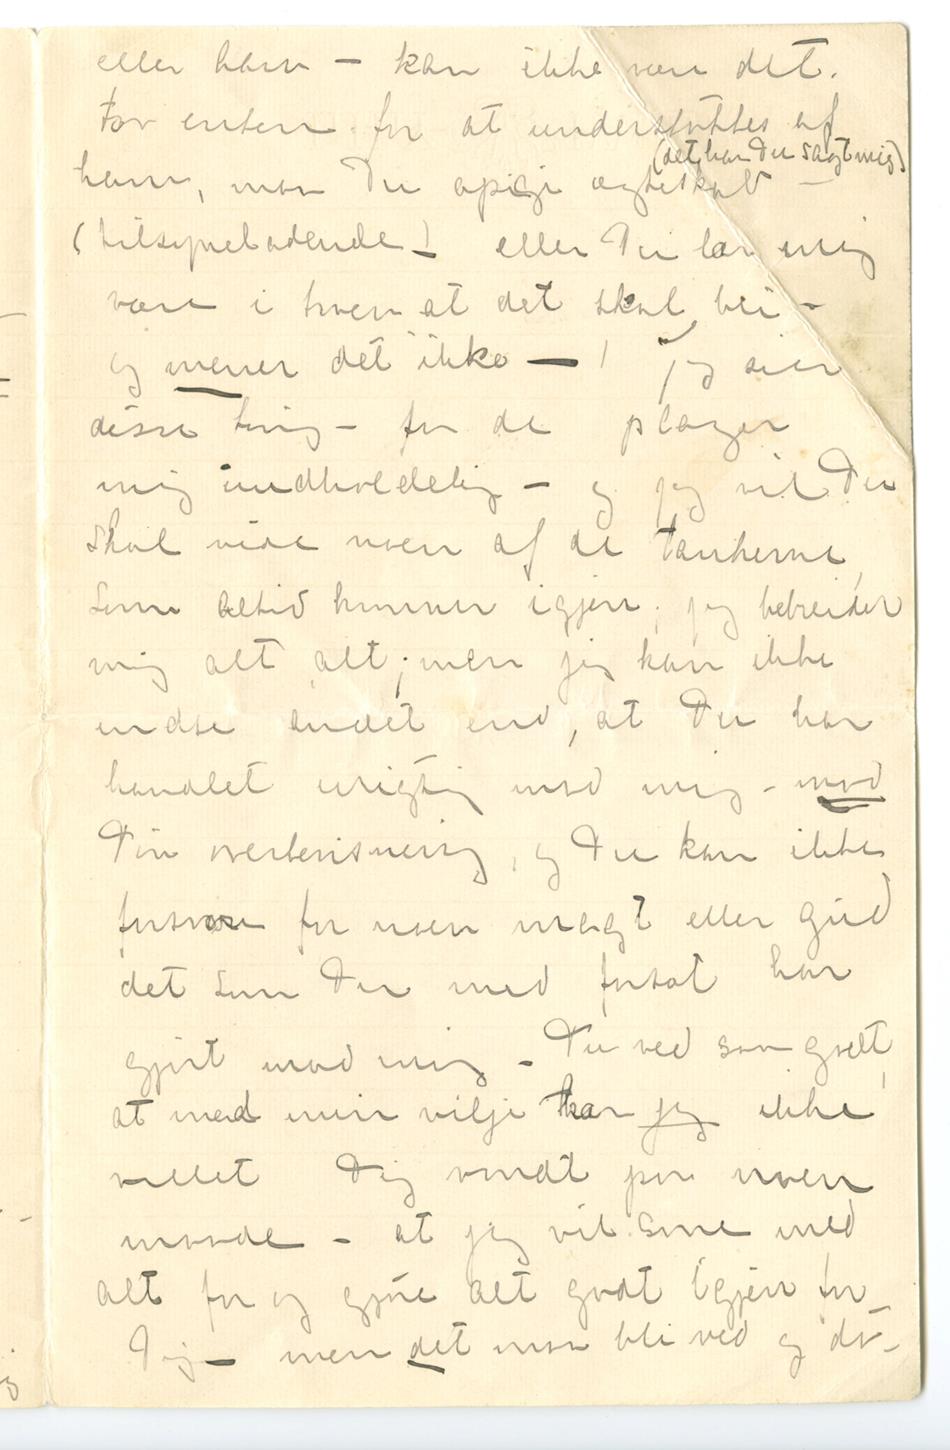 eller ham – kan ikke være det.
For enten for at understøttes af
(det har Du sagt mig)
ham, maa Du opgi ægteskab –
(tilsyneladende) – eller Du lar mig
være i troen at det skal bli –
og mener det ikke – ! Jeg sier
disse ting – for de plager
mig uudholdelig – og jeg vil Du
skal vide noen af de tankerne,
som altid kommer igjen; jeg bebreider
mig alt, alt; men jeg kan ikke
indse andet end, at Du har
handlet urigtig mod mig – mod
Din overbevisning, og Du kan ikke
forsvare for noen magt eller gud
det som Du med forsat har
gjort mod mig – Du ved saa godt,
at med min vilje har jeg ikke
villet Dig vondt paa noen
maade – at jeg vil sone med
alt for og gjøre alt godt igjen for
Dig – men det maa bli ved og dø –